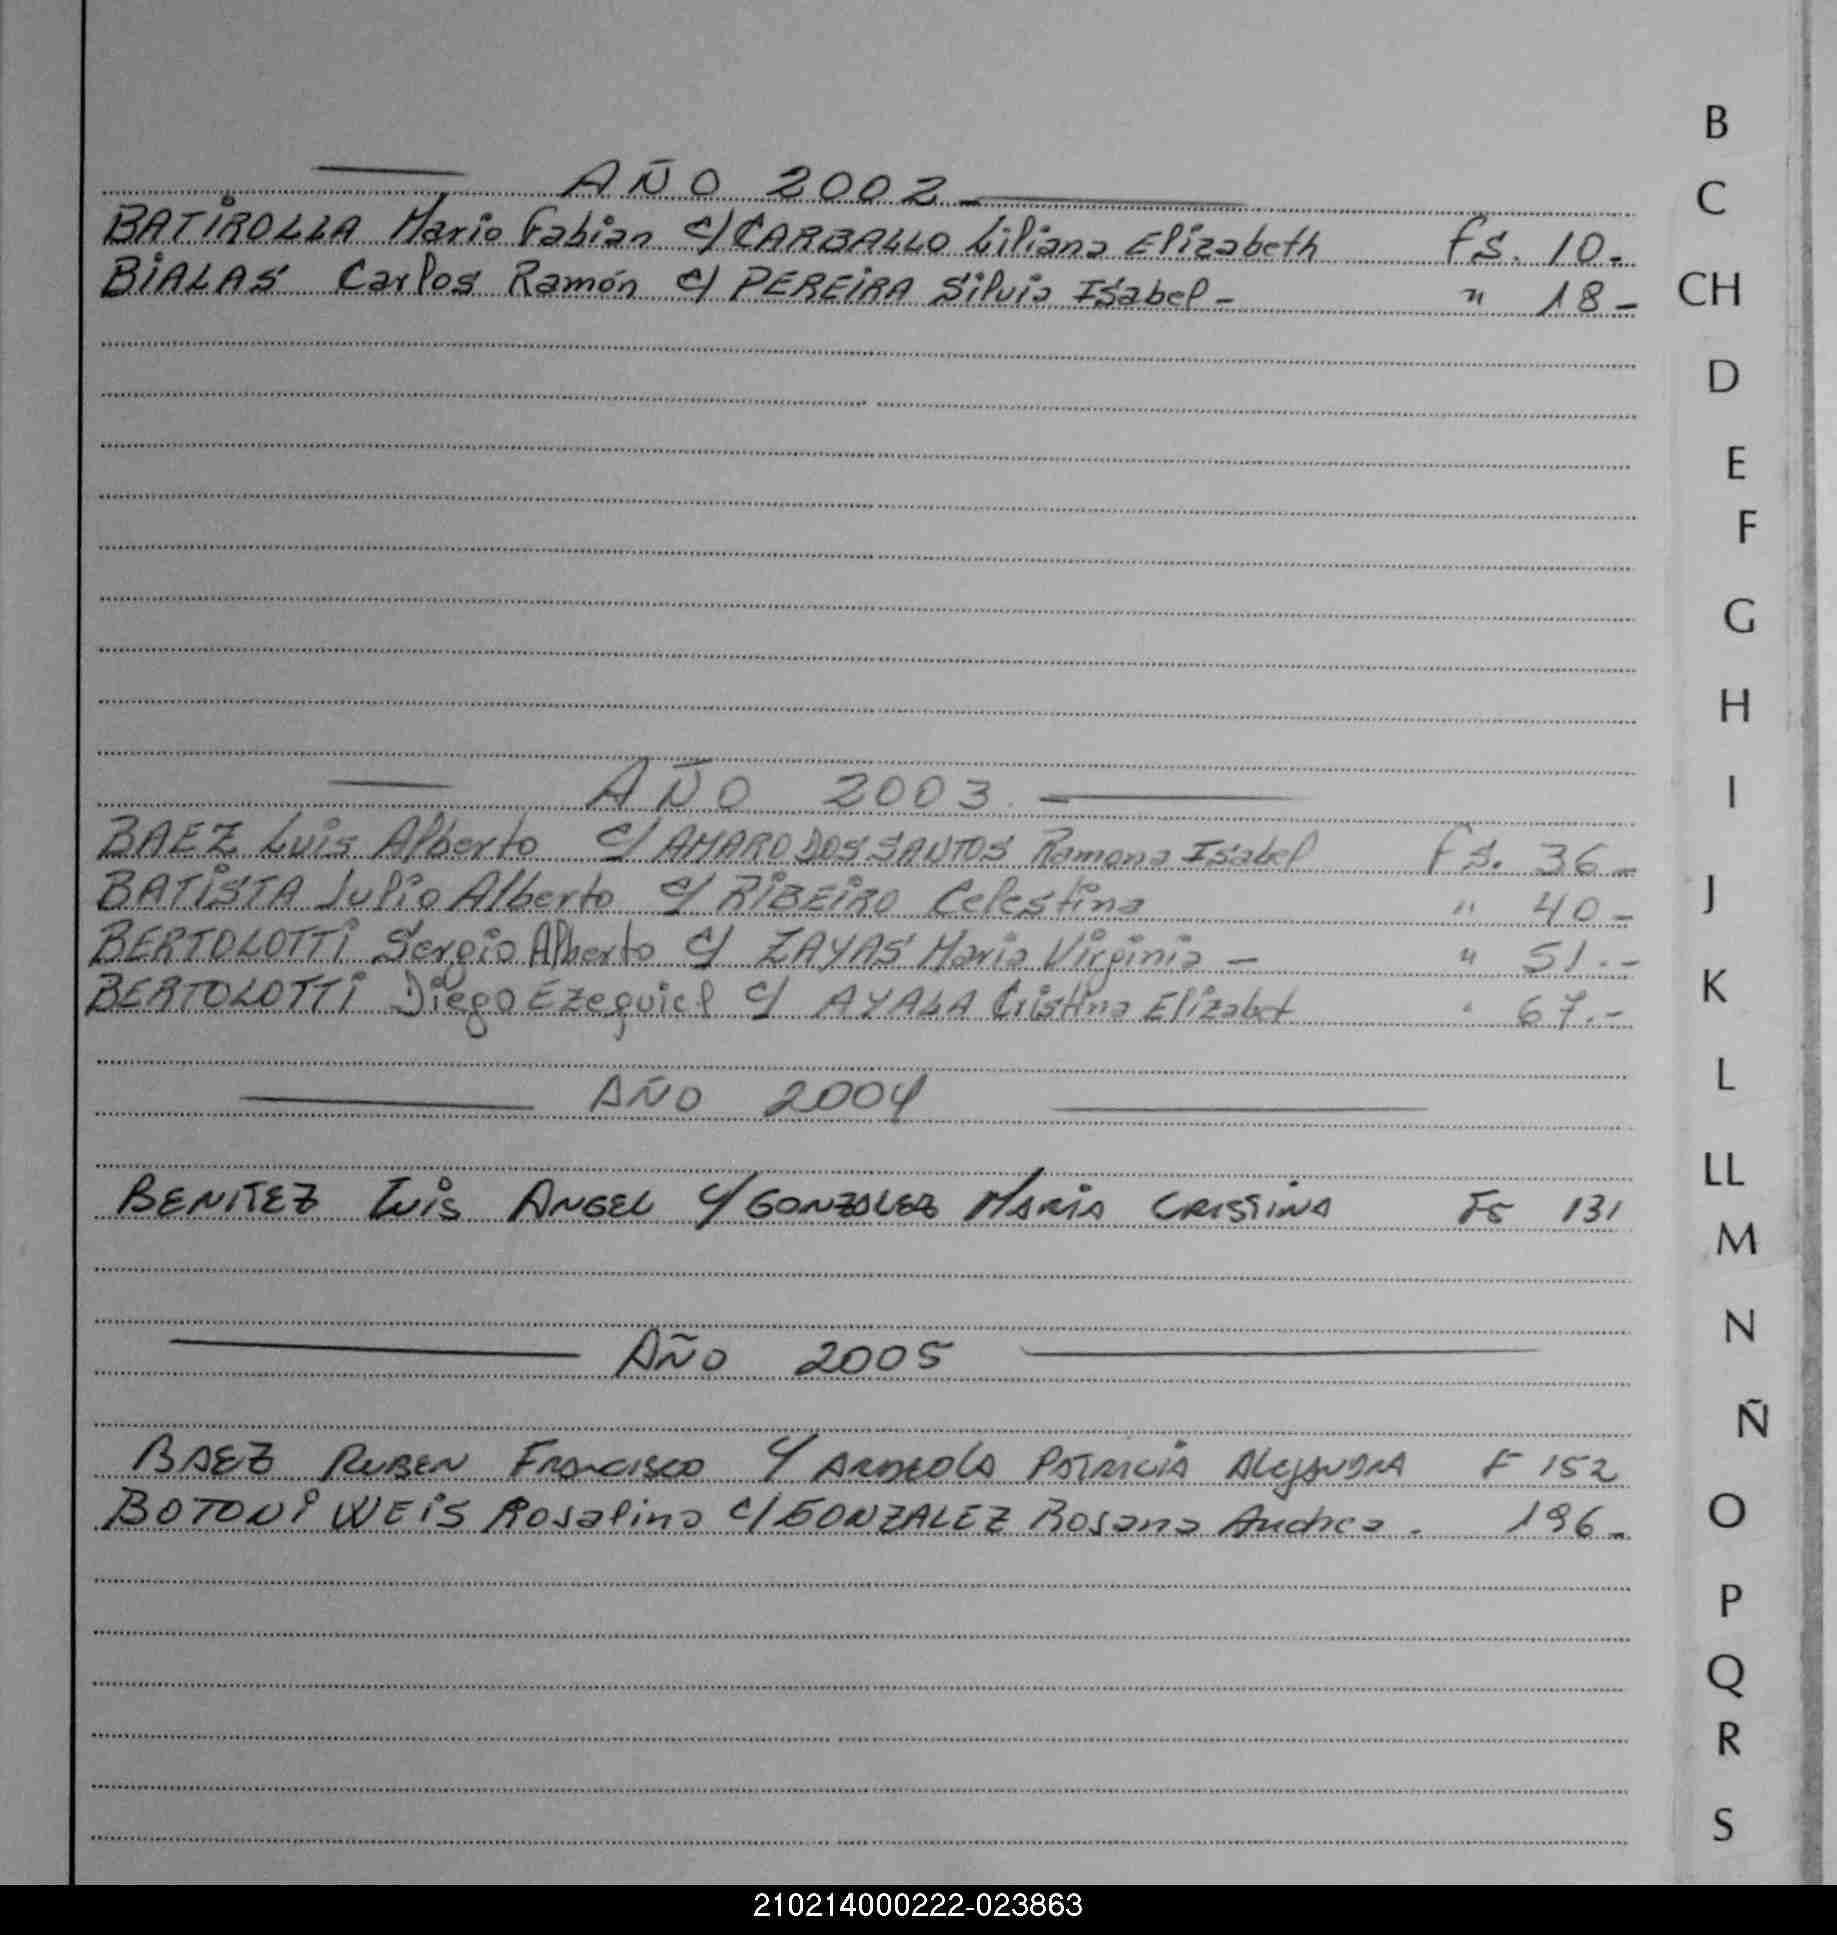 AÑO 2002
BATIROLLA Mario Fabian c/ CARBALLO Liliana Elizabeth Fs. 10.-
BIALAS Carlos Ramón c/ PEREIRA Silvia Isabel - " 18 -
AÑO 2003
BAEZ Luis Alberto c/ AMARO DOS SANTOS Ramona Isabel Fs. 36 -
BATISTA Julio Alberto c/ RIBEIRO Celestina " 40 -
BERTOLOTTI Sergio Alberto c/ ZAYAS Maria Virginia - " 51.-
BERTOLOTTI Diego Ezequiel c/ AYALA Cristina Elizabet " 67.-
AÑO 2004
BENITEZ LUIS ANGEL c/ GONZALEZ MARIA CRISTINA Fs 131
AÑO 2005
BAEZ RUBEN FRANCISCO c/ PATRICIA ALEJANDRA F 152
BOTONI WEIS Rosalino c/ GONZALEZ Rosana Andrea. 196 -
B
C
CH
D
E
F
G
H
I
J
K
L
LL
M
N
Ñ
O
P
Q
R
S
210214000222-023863